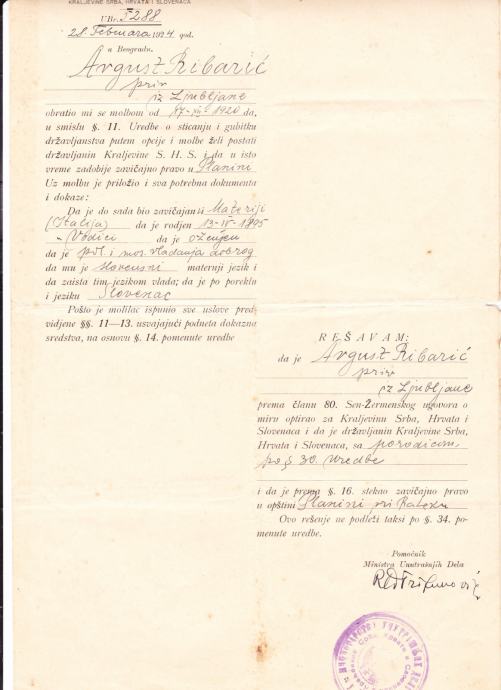 KRALJEVINE SRBA, HRVATA I SLOVENACA
UBr. 5288
28. Februara 1924 god.
u Beogradu.
Avgust Ribarić
priv
iz Ljubljane
obratio mi se molbom od 17-XII- 1920 da,
u smislu §. 11. Uredbe o sticanju i gubitku
državljanstva putem opcije i molbe želi postati
državljanin Kraljevine S. H. S. i da u isto
vreme zadobije zavičajno pravo u Planini
Uz molbu je priložio i sva potrebna dokumenta
i dokaze:
Da je do sada bio zavičajan u Materiji
(Italija) da je rodjen 13-IV-1895
u Vodici da je oženjen
da je pol. i mor. vladanja dobrog
da mu je slovenski maternji jezik i
da zaista tim jezikom vlada; da je po poreklu
i jeziku Slovenac
Pošto je molilac ispunio sve uslove pred-
vidjene §§. 11—13. usvajajući podneta dokazna
sredstva, na osnovu §. 14. pomenute uredbe
REŠAVAM:
da je Avgust Ribarić
priv
iz Ljubljane
prema članu 80. Sen-Žermenskog ugovora o
miru optirao za Kraljevinu Srba, Hrvata i
Slovenaca i da je državljanin Kraljevine Srba,
Hrvata i Slovenaca, sa porodicom
po § 30. Uredbe
i da je prema §. 16. stekao zavičajno pravo
u opštini Planini pri Rakeku
Ovo rešenje ne podleži taksi po §. 34. po-
menute uredbe.
Pomoćnik
Ministra Unutrašnjih Dela